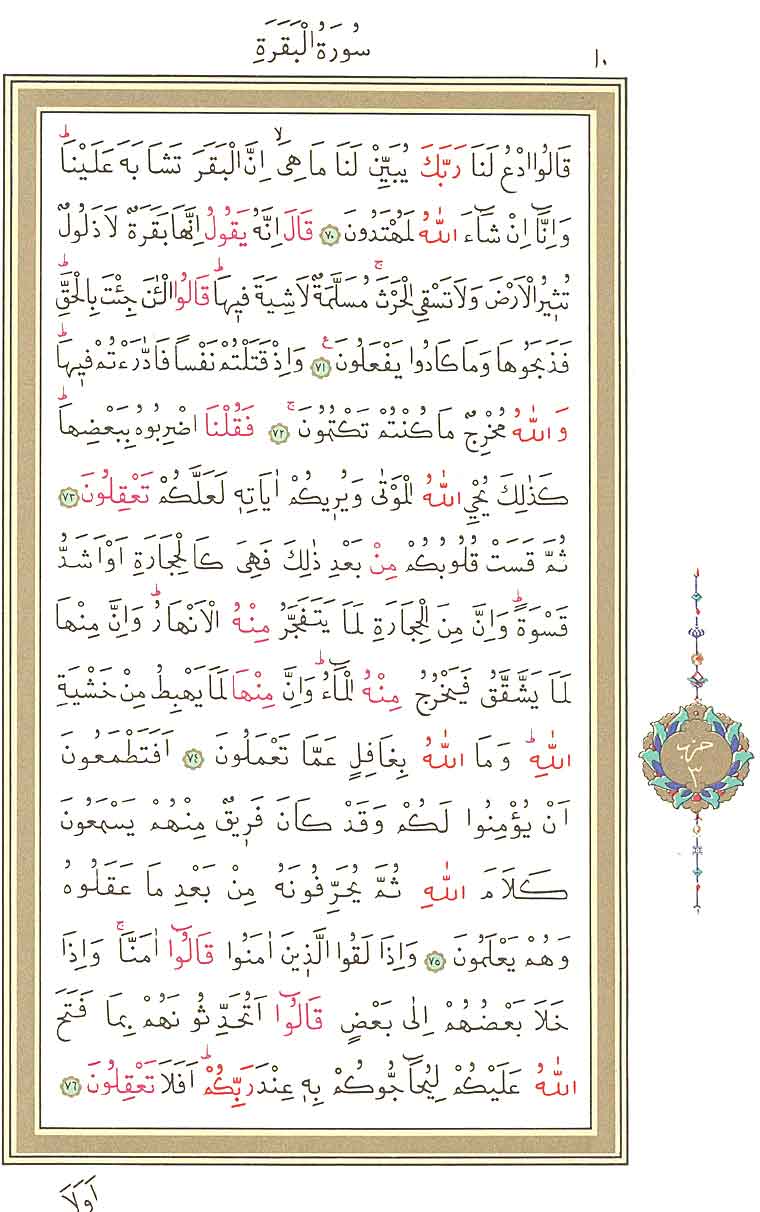 سُورَةُ الْبَقَرَةِ
١٠
قَالُوا ادْعُ لَنَا رَبَّكَ يُبَيِّنْ لَنَا مَا هِىَۙ اِنَّ الْبَقَرَ تَشَابَهَ عَلَيْنَاۜ
وَاِنَّٓا اِنْ شَٓاءَ اللّٰهُ لَمُهْتَدُونَ ﴿٧٠﴾ قَالَ اِنَّهُ يَقُولُ اِنَّهَا بَقَرَةٌ لَا ذَلُولٌ
تُثٖيرُ الْاَرْضَ وَلَا تَسْقِى الْحَرْثَۚ مُسَلَّمَةٌ لَا شِيَةَ فٖيهَاؕ قَالُوا الْـٰٔنَ جِئْتَ بِالْحَقِّؕ
فَذَبَحُوهَا وَمَا كَادُوا يَفْعَلُونَ ﴿٧١﴾ وَاِذْ قَتَلْتُمْ نَفْساً فَادّٰرَءْتُمْ فٖيهَاؕ
وَاللّٰهُ مُخْرِجٌ مَا كُنْتُمْ تَكْتُمُونَۚ ﴿٧٢﴾ فَقُلْنَا اضْرِبُوهُ بِبَعْضِهَاؕ
كَذٰلِكَ يُحْيِ اللّٰهُ الْمَوْتٰى وَيُرٖيكُمْ اٰيَاتِهٖ لَعَلَّكُمْ تَعْقِلُونَ ﴿٧٣﴾
ثُمَّ قَسَتْ قُلُوبُكُمْ مِنْ بَعْدِ ذٰلِكَ فَهِىَ كَالْحِجَارَةِ اَوْ اَشَدُّ
قَسْوَةًؕ وَاِنَّ مِنَ الْحِجَارَةِ لَمَا يَتَفَجَّرُ مِنْهُ الْاَنْهَارُؕ وَاِنَّ مِنْهَا
لَمَا يَشَّقَّقُ فَيَخْرُجُ مِنْهُ الْمَٓاءُؕ وَاِنَّ مِنْهَا لَمَا يَهْبِطُ مِنْ خَشْيَةِ
اللّٰهِؕ وَمَا اللّٰهُ بِغَافِلٍ عَمَّا تَعْمَلُونَ ﴿٧٤﴾ اَفَتَطْمَعُونَ
اَنْ يُؤْمِنُوا لَكُمْ وَقَدْ كَانَ فَرٖيقٌ مِنْهُمْ يَسْمَعُونَ
كَلَامَ اللّٰهِ ثُمَّ يُحَرِّفُونَهُ مِنْ بَعْدِ مَا عَقَلُوهُ
وَهُمْ يَعْلَمُونَ ﴿٧٥﴾ وَاِذَا لَقُوا الَّذٖينَ اٰمَنُوا قَالُٓوا اٰمَنَّاۚ وَاِذَا
خَلَا بَعْضُهُمْ اِلٰى بَعْضٍ قَالُٓوا اَتُحَدِّثُونَهُمْ بِمَا فَتَحَ
اللّٰهُ عَلَيْكُمْ لِيُحَٓاجُّوكُمْ بِهٖ عِنْدَ رَبِّكُمْؕ اَفَلَا تَعْقِلُونَ ﴿٧٦﴾
حزب
٣
اَوَلَا